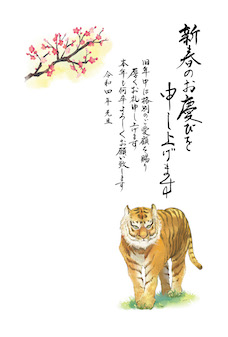 新春のお慶びを
申し上げます
旧年中は格別のご愛顧を賜り
厚くお礼申し上げます
本年も何卒よろしくお願い致します
令和四年 元旦